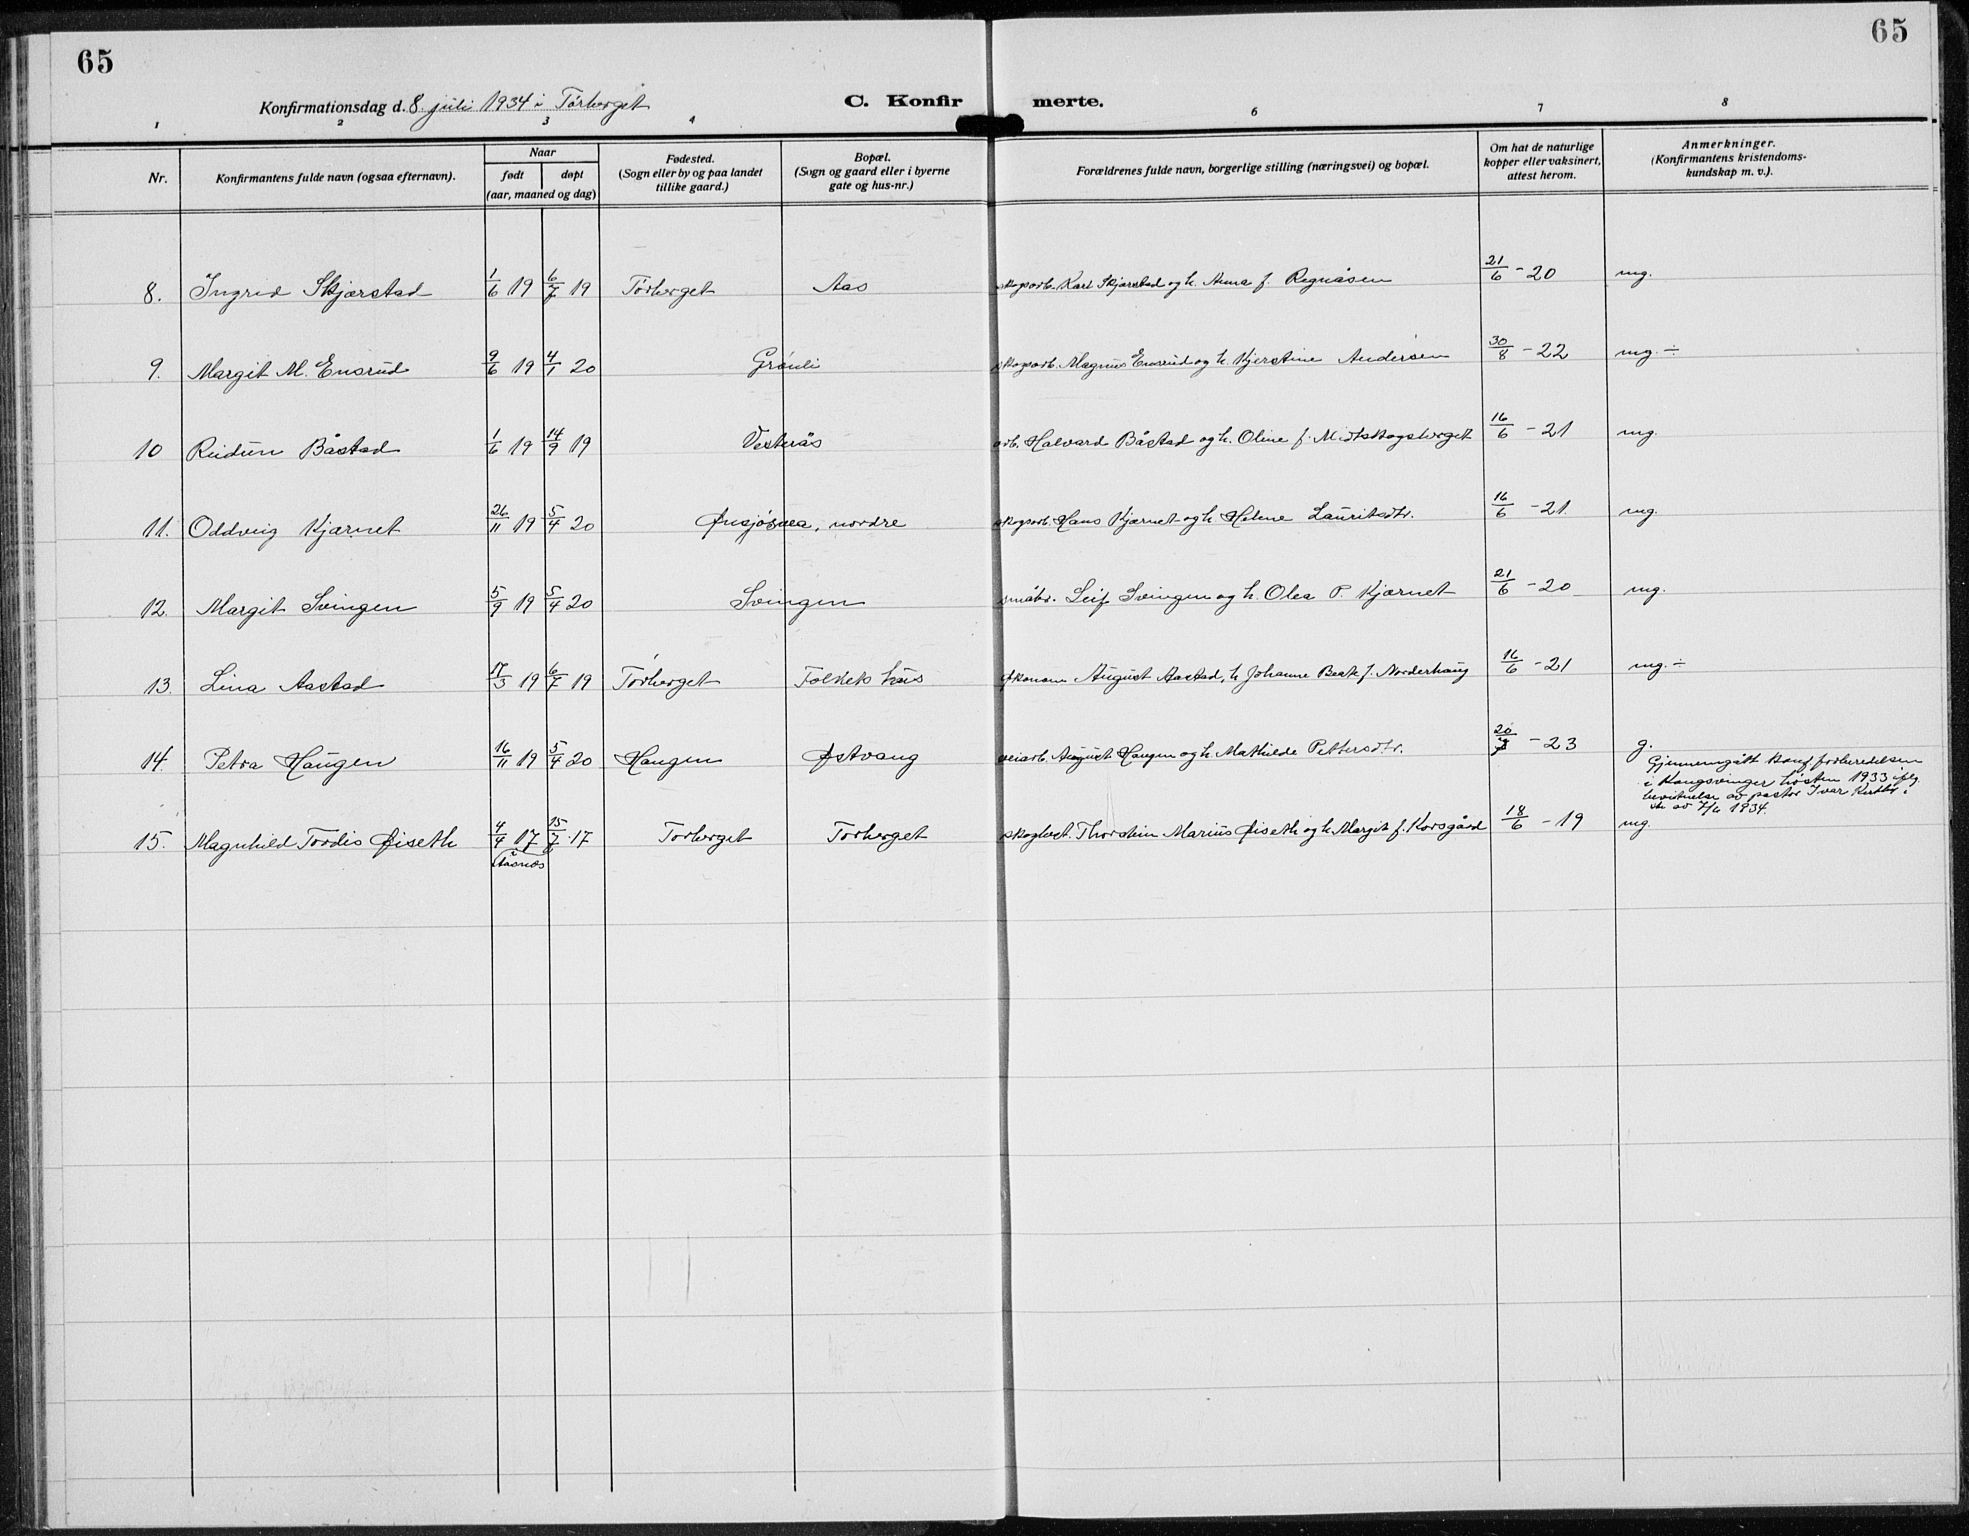 65
65
Konfirmationsdag d. 8. juli 1934 i Tørberget
C. Konfir merte.
1 2 3 4 6 7 8
Nr.
Konfirmantens fulde navn (ogsaa efternavn).
Naar
født døpt
(aar, maaned og dag)
Fødested.
(Sogn eller by og paa landet
tillike gaard.)
Bopæl.
(Sogn og gaard eller i byerne
gate og hus-nr.)
Forældrenes fulde navn, borgerlige stilling (næringsvei) og bopæl.
Om hat de naturlige
kopper eller vaksinert,
attest herom.
Anmerkninger.
(Konfirmantens kristendoms-
kundskap m. v.).
8. Ingrid Skjærstad 1/6 19 6/7 19 Tørberget Aas skogsarb. Karl Skjærstad og h. Anna f. Regnåsen 21/6 - 20 mg.
9. Margit M. Ensrud 9/6 19 4/1 20 Grønli skogsarb. Magnus Ensrud og h. Kjerstine Andersen 30/8 - 22 mg. ÷
10 Reidun Båstad 1/6 19 14/9 19 Vesterås arb. Halvard Båstad og h. Oline f. Midtskogsberget 16/6 - 21 mg.
11. Oddveig Kjærnet 26/11 19 5/4 20 Ønsjøsæa, nordre skogsarb. Hans Kjærnet og h. Helene Lauritsdtr. 16/6 - 21 mg.
12. Margit Svingen 5/9 19 5/4 20 Svingen småbr. Leif Svingen og h. Olea P. Kjærnet 21/6 - 20 mg.
13. Lina Aastad 17/3 19 6/7 19 Tørberget Folkets hus økonom August Aastad, h. Johanne Beate f. Norderhaug 16/6 - 21 mg. ÷
14. Petra Haugen 16/11 19 5/4 20 Haugen Østvang veiarb. August Haugen og h. Mathilde Pettersdtr. 20/ - 23 g.
Gjennemgått konf. forberedelsen
i Kongsvinger høsten 1933 iflg.
bevitnelse av pastor Ivar
av 7/6 1934.
15. Magnhild Tordis Øiseth 4/4 17 15/7 17 Tørberget Tørberget Thorstein Marius Øiseth og h. Margit f. Korsgård 18/6 - 19 mg.
(Åsnes)